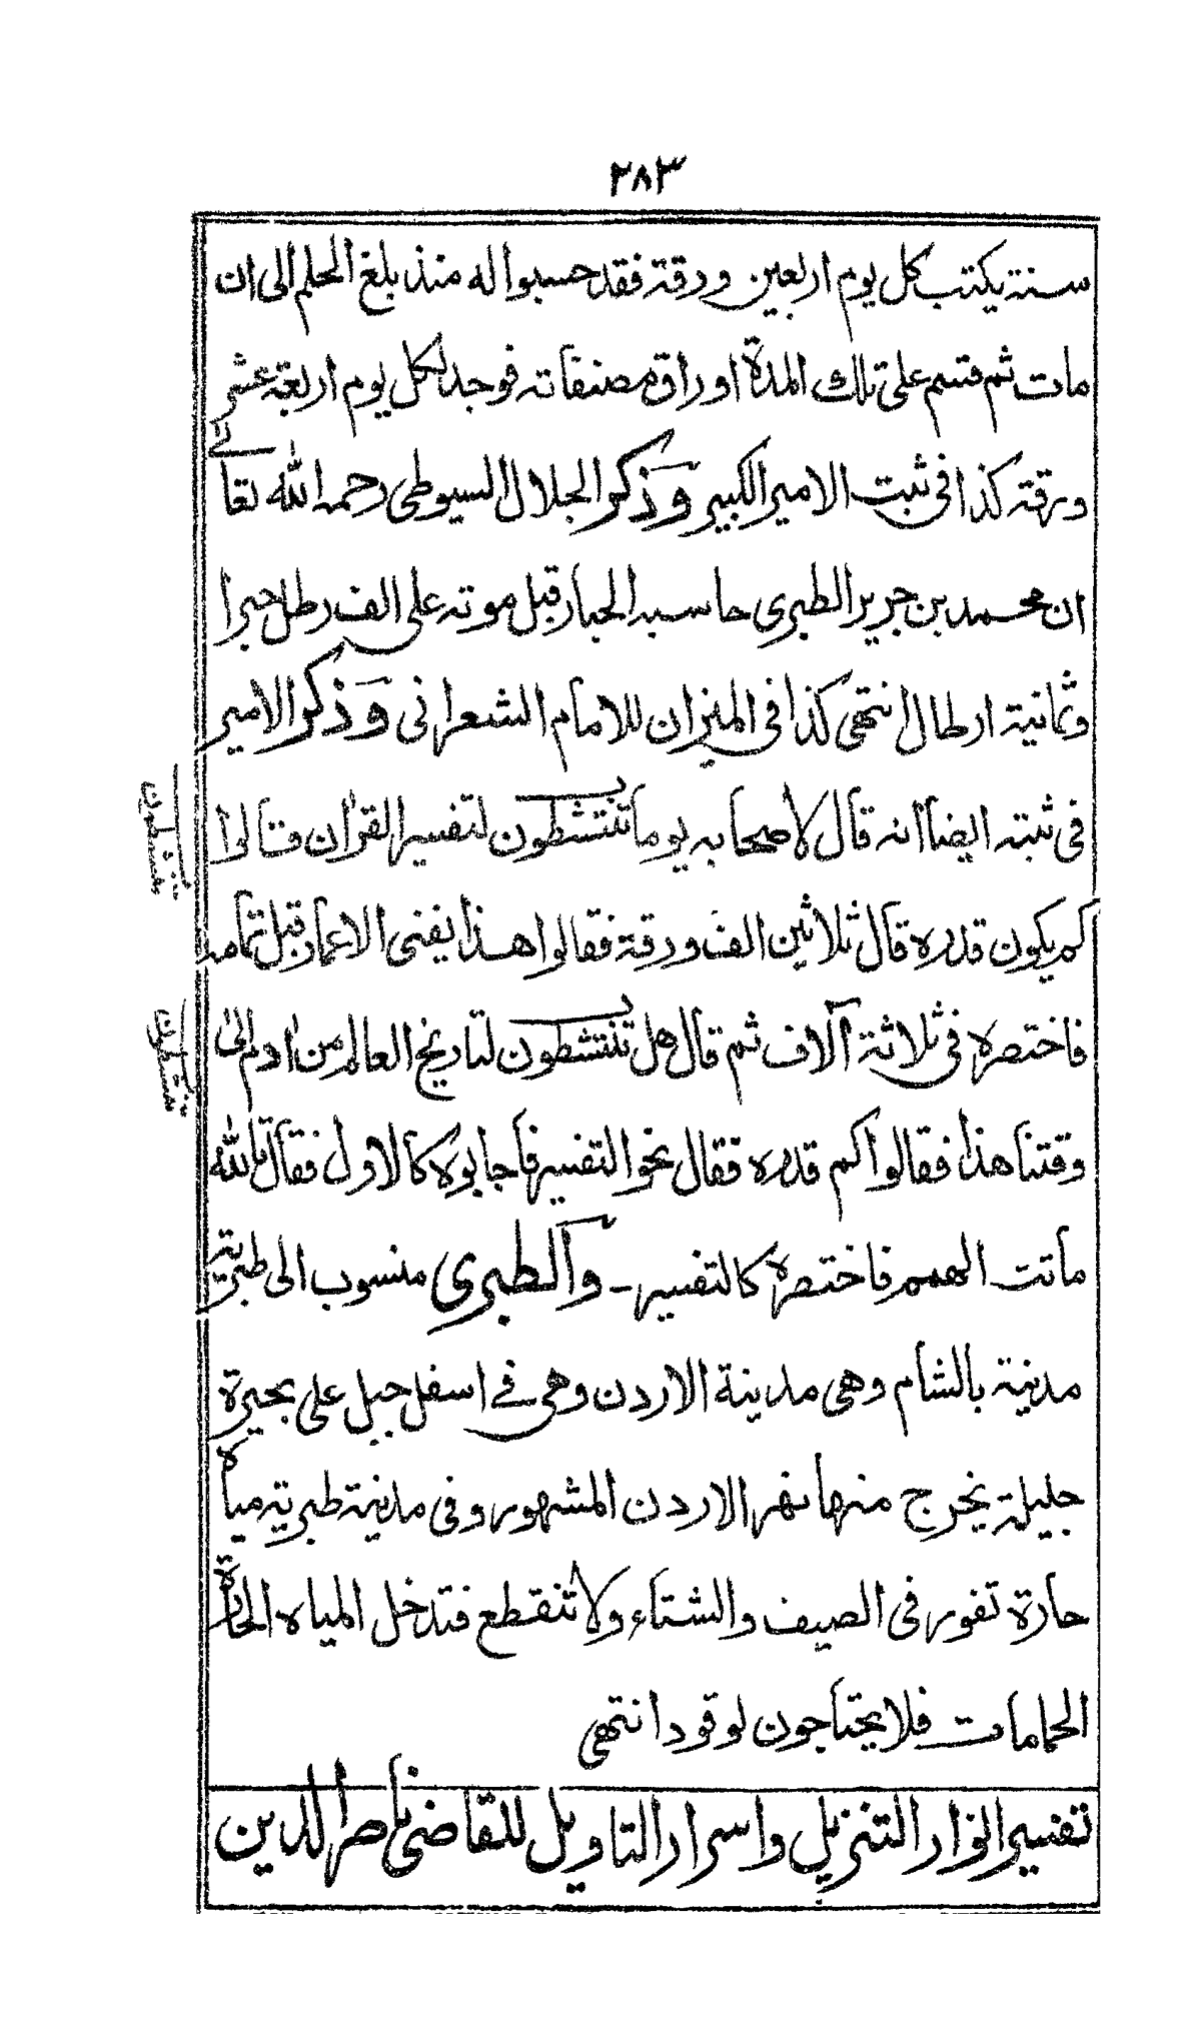 ٢٨٣
سنة يكتب كل يوم اربعين ورقة فقد حسبوا له منذ بلغ الحلم الى ان
مات ثم قسم على تلك المدة اوراق مصنفاته فوجد لكل يوم اربعة عشر
ورقة كذا فى ثبت الامير الكبير وذكر الجلال السيوطى رحمه الله تعالى
ان محمد بن جرير الطبرى حاسبه الحبار قبل موته على الف رطل حبرا
وثمانية ارطال انتهى كذا فى الميزان للامام الشعرانى وذكر الامير
فى ثبته ايضا انه قال لاصحابه يوما تنتشطون لتفسير القرآن قالوا
كم يكون قدره قال ثلاثين الف ورقة فقالوا هذا يفنى الاعمار قبل تمامه
فاختصره فى ثلاثة آلاف ثم قال هل تنتشطون لتاريخ العالم من ادم الى
وقتنا هذا فقالوا كم قدره فقال نحو التفسير فاجابوه كالاول فقال تالله
ماتت الهمم فاختصره كالتفسير ـ والطبرى منسوب الى طبرية
مدينة بالشام وهى مدينة الاردن وهى فے اسفل جبل على بحيرة
جليلة يخرج منها نهر الاردن المشهور وفى مدينة طبرية مياه
حارة تفور فى الصيف والشتاء ولا تنقطع فتدخل المياه الحارة
الحمامات فلا يحتاجون لوقود انتهى
تفسير انوار التنزيل واسرار التاويل للقاضى ناصر الدين